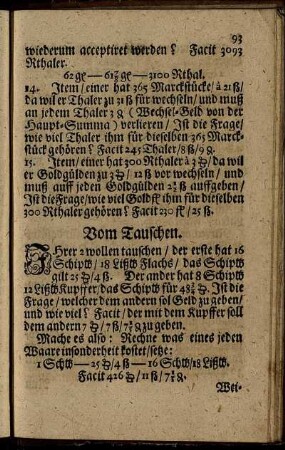 93
wiederum acceptiret werden? Facit 3093
Rthaler.
62 gē — 61½ gē — 3100 Rthal.
14. Item/ einer hat 365 Marckstücke/ à 21 ß/
da wil er Thaler zu 31 ß für wechseln/ und muß
an jedem Thaler 3 ₰ (Wechsel-Geld von der
Haupt-Summa) verlieren/ Ist die Frage/
wie viel Thaler ihm für dieselben 365 Marck-
stück gehören? Facit 245 Thaler/ 8 ß/ 9 ₰.
15. Item/ einer hat 300 Rthaler à 3 ℔/ da wil
er Goldgülden zu 3 ℔/ 12 ß vor wechseln/ und
muß auff jeden Goldgülden 2½ ß auffgeben/
Ist die Frage/ wie viel Goldfl ihm für dieselben
300 Rthaler gehören? Facit 230 fl/ 25 ß.
Vom Tauschen.
IHrer 2 wollen tauschen/ der erste hat 16
Schiptb/ 18 Lißtb Flachs/ das Schiptb
gilt 25 ℔/ 4 ß. Der ander hat 8 Schiptb
12 Lißtb Kupffer/ das Schiptb für 48½ ℔. Ist die
Frage/ welcher dem andern sol Geld zu geben/
und wie viel? Facit/ der mit dem Kupffer soll
dem andern 7 ℔/ 7 ß/ 7⅕ ₰ zu geben.
Mache es also: Rechne was eines jeden
Waare insonderheit kostet/ setze:
1 Schtb — 25 ℔/ 4 ß — 16 Schtb/ 18 Lißtb.
Facit 426 ℔/ 11 ß/ 7⅕ ₰.
Wei-